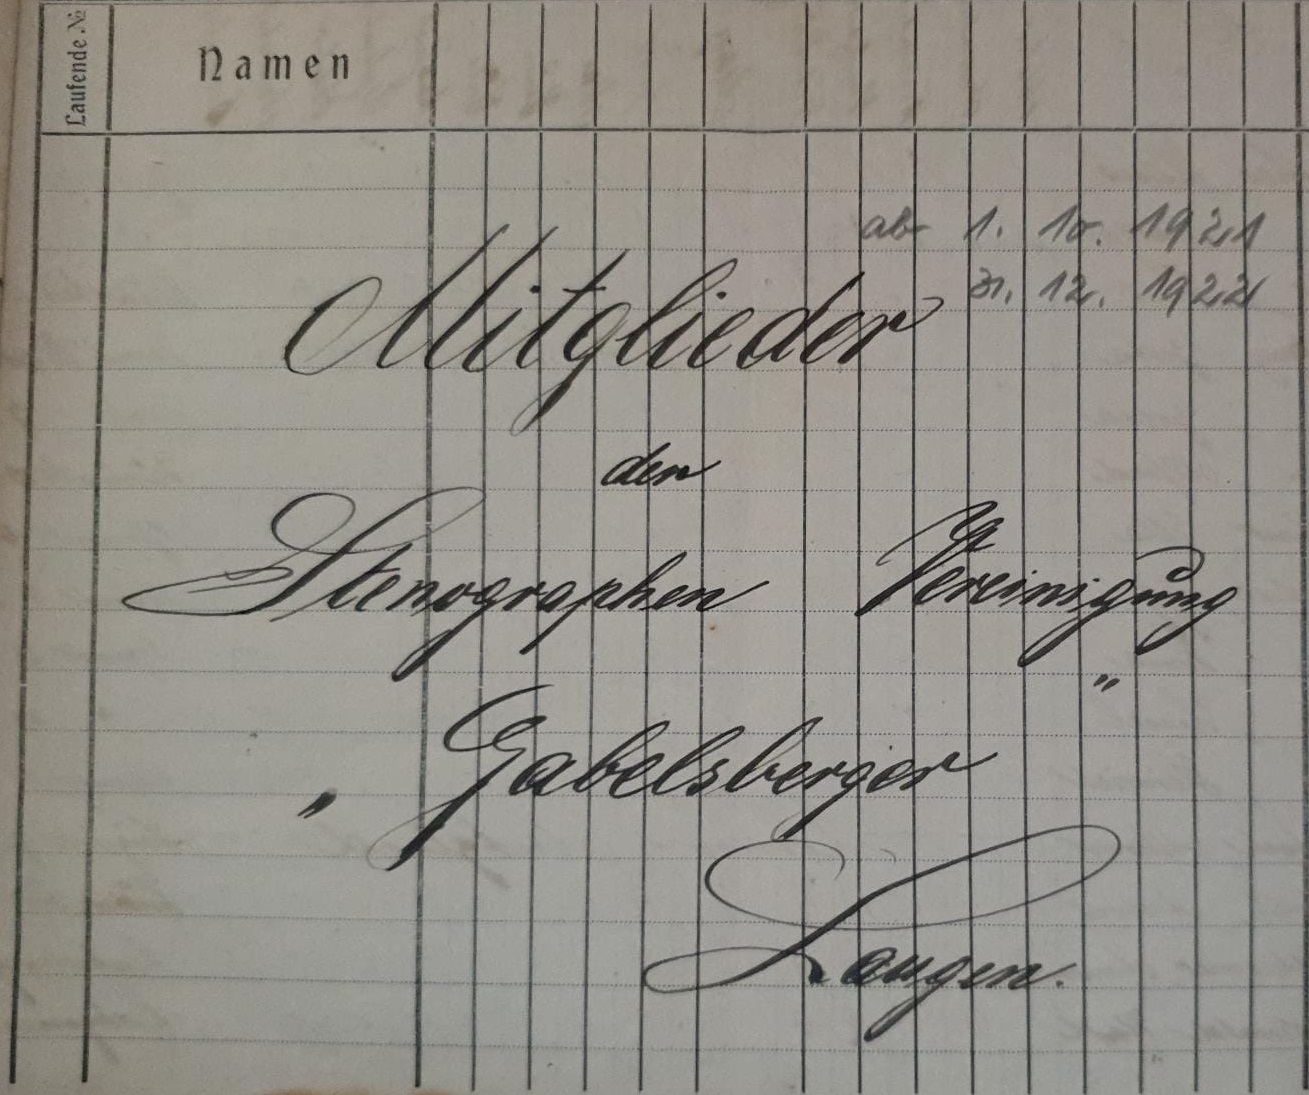 Laufende № Namen
ab 1. 10. 1921
31. 12. 1922
Mitglieder
der
Stenographen Vereinigung
„Gabelsberger"
Langen.